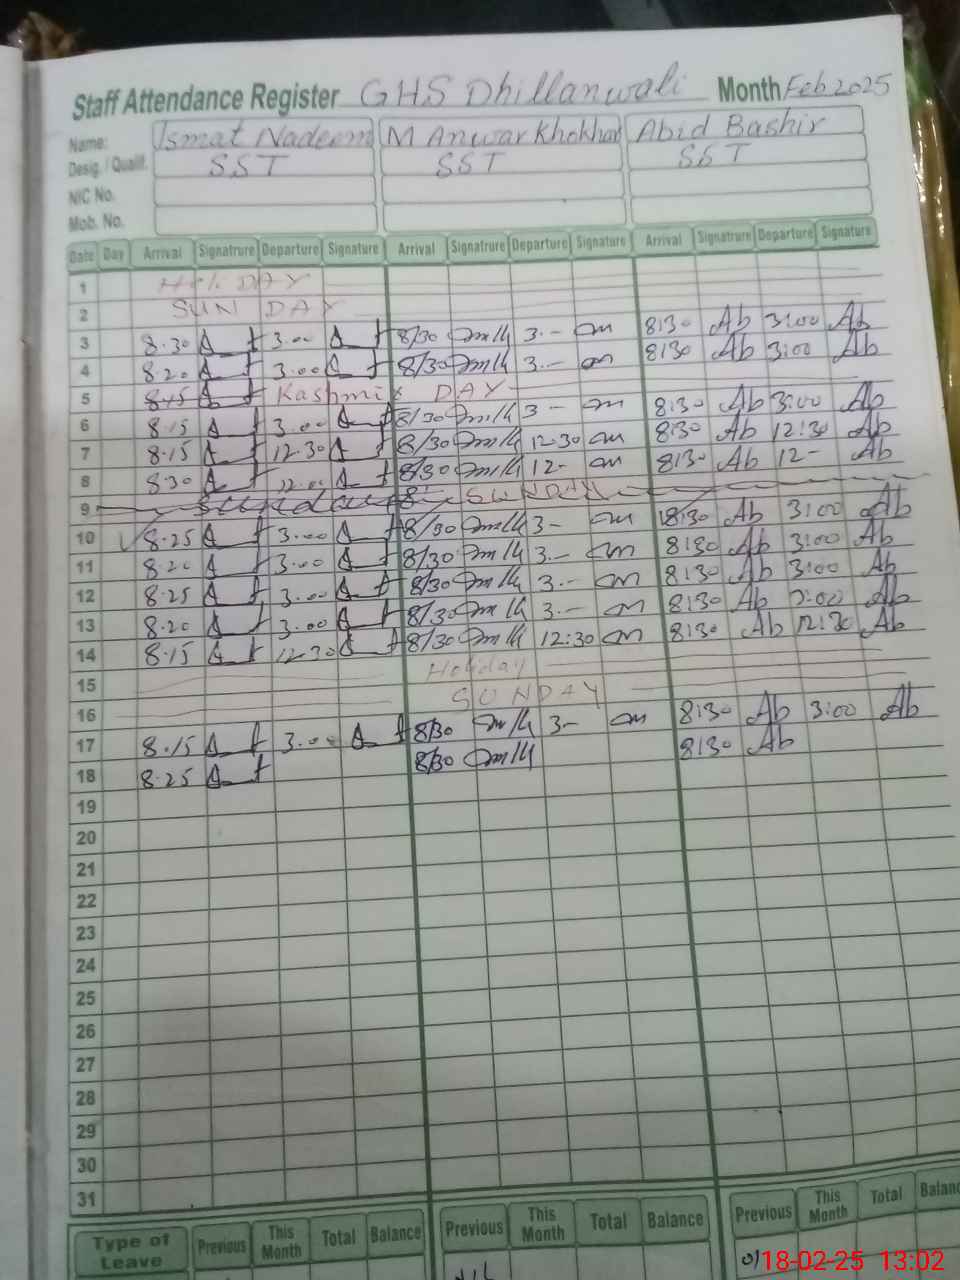 Staff Attendance Register GHS Dhillanwali Month Feb 2025
Name: Ismat Nadeem M Anwar Khokhar Abid Bashir
Desig. / Qualif. SST SST SST
NIC No.
Mob. No.
Date Day Arrival Signatrure Departure Signature Arrival Signatrure Departure Signature Arrival Signatrure Departure Signature
1 Holi DAY
2 SUN DAY
3 8.30 3.00 8/30 3.- 8:30 Ab 3:00 Ab
4 8.20 3.00 8/30 3.- 8:30 Ab 3:00 Ab
5 8.15 Kashmir DAY
6 8.15 3.00 8/30 3- 8:30 Ab 3:00 Ab
7 8.15 12.30 8/30 12.30 8:30 Ab 12:30 Ab
8 8.30 12.00 8/30 12- 8:30 Ab 12- Ab
9 Sunday SUNDAY
10 8.25 3.00 8/30 3- 8:30 Ab 3:00 Ab
11 8.20 3.00 8/30 3.- 8:30 Ab 3:00 Ab
12 8.25 3.00 8/30 3.- 8:30 Ab 3:00 Ab
13 8.20 3.00 8/30 3.- 8:30 Ab 3:00 Ab
14 8.15 12.30 8/30 12:30 8:30 Ab 12:30 Ab
15 Holiday
16 SUNDAY
17 8.15 3.00 8/30 3- 8:30 Ab 3:00 Ab
18 8.25 8/30 8:30 Ab
19
20
21
22
23
24
25
26
27
28
29
30
31
Type of Leave Previous This Month Total Balance Previous This Month Total Balance Previous This Month Total Balanc
18-02-25 13:02